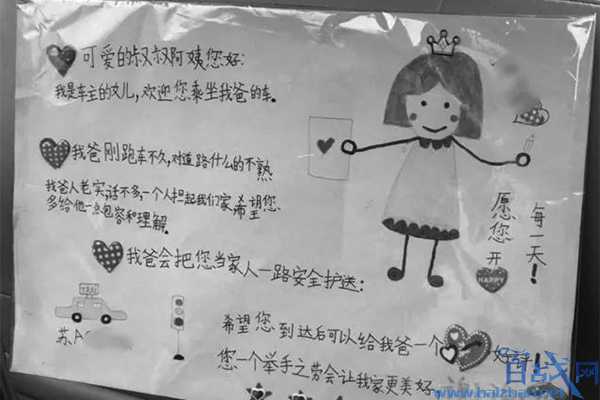 可爱的叔叔阿姨您好:
我是车主的女儿,欢迎您乘坐我爸的车。
我爸刚跑车不久,对道路什么的不熟
我爸人老实,话不多,一个人担起我们家希望您
多给他一点包容和理解。
我爸会把您当家人一路安全护送:
愿您开
HAPPY
每一天!
TAXI
苏A
希望您到达后可以给我爸一个好评!
您一个举手之劳会让我家更美好
百战网
www.baizhan